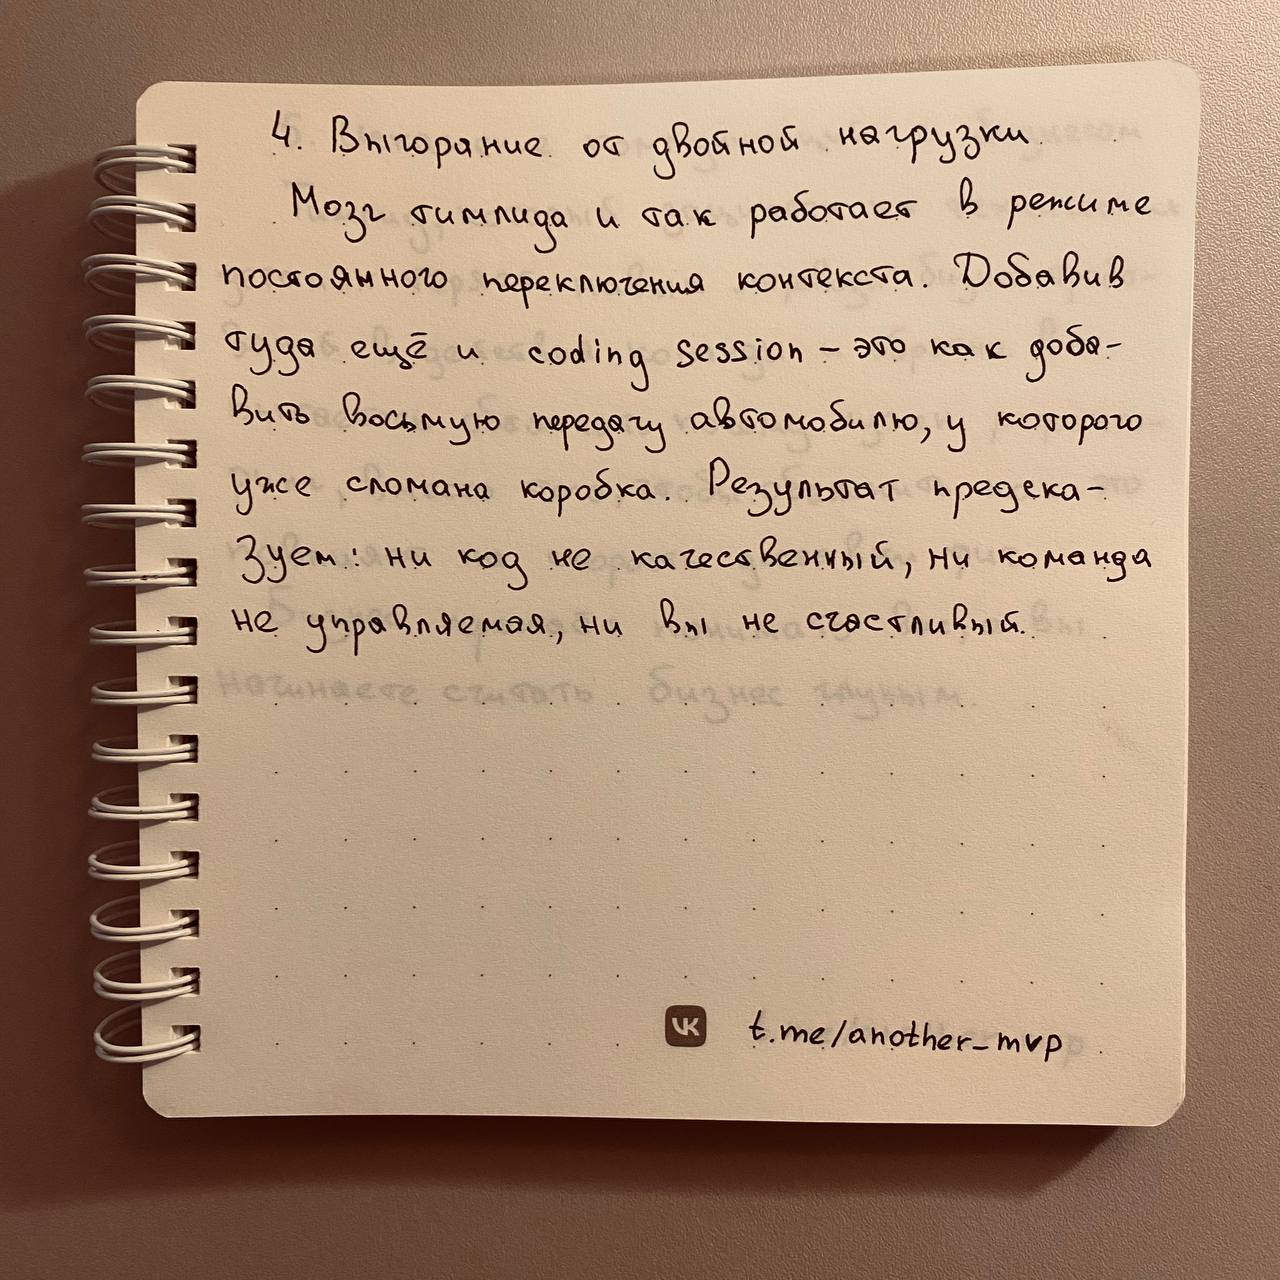 4. Выгорание от двойной нагрузки
Мозг тимлида и так работает в режиме
постоянного переключения контекста. Добавив
туда ещё и coding session – это как доба-
вить восьмую передачу автомобилю, у которого
уже сломана коробка. Результат предска-
зуем: ни код не качественный, ни команда
не управляемая, ни вы не счастливый.
начинаете считать бизнес глупым.
VK t.me/another_mvp